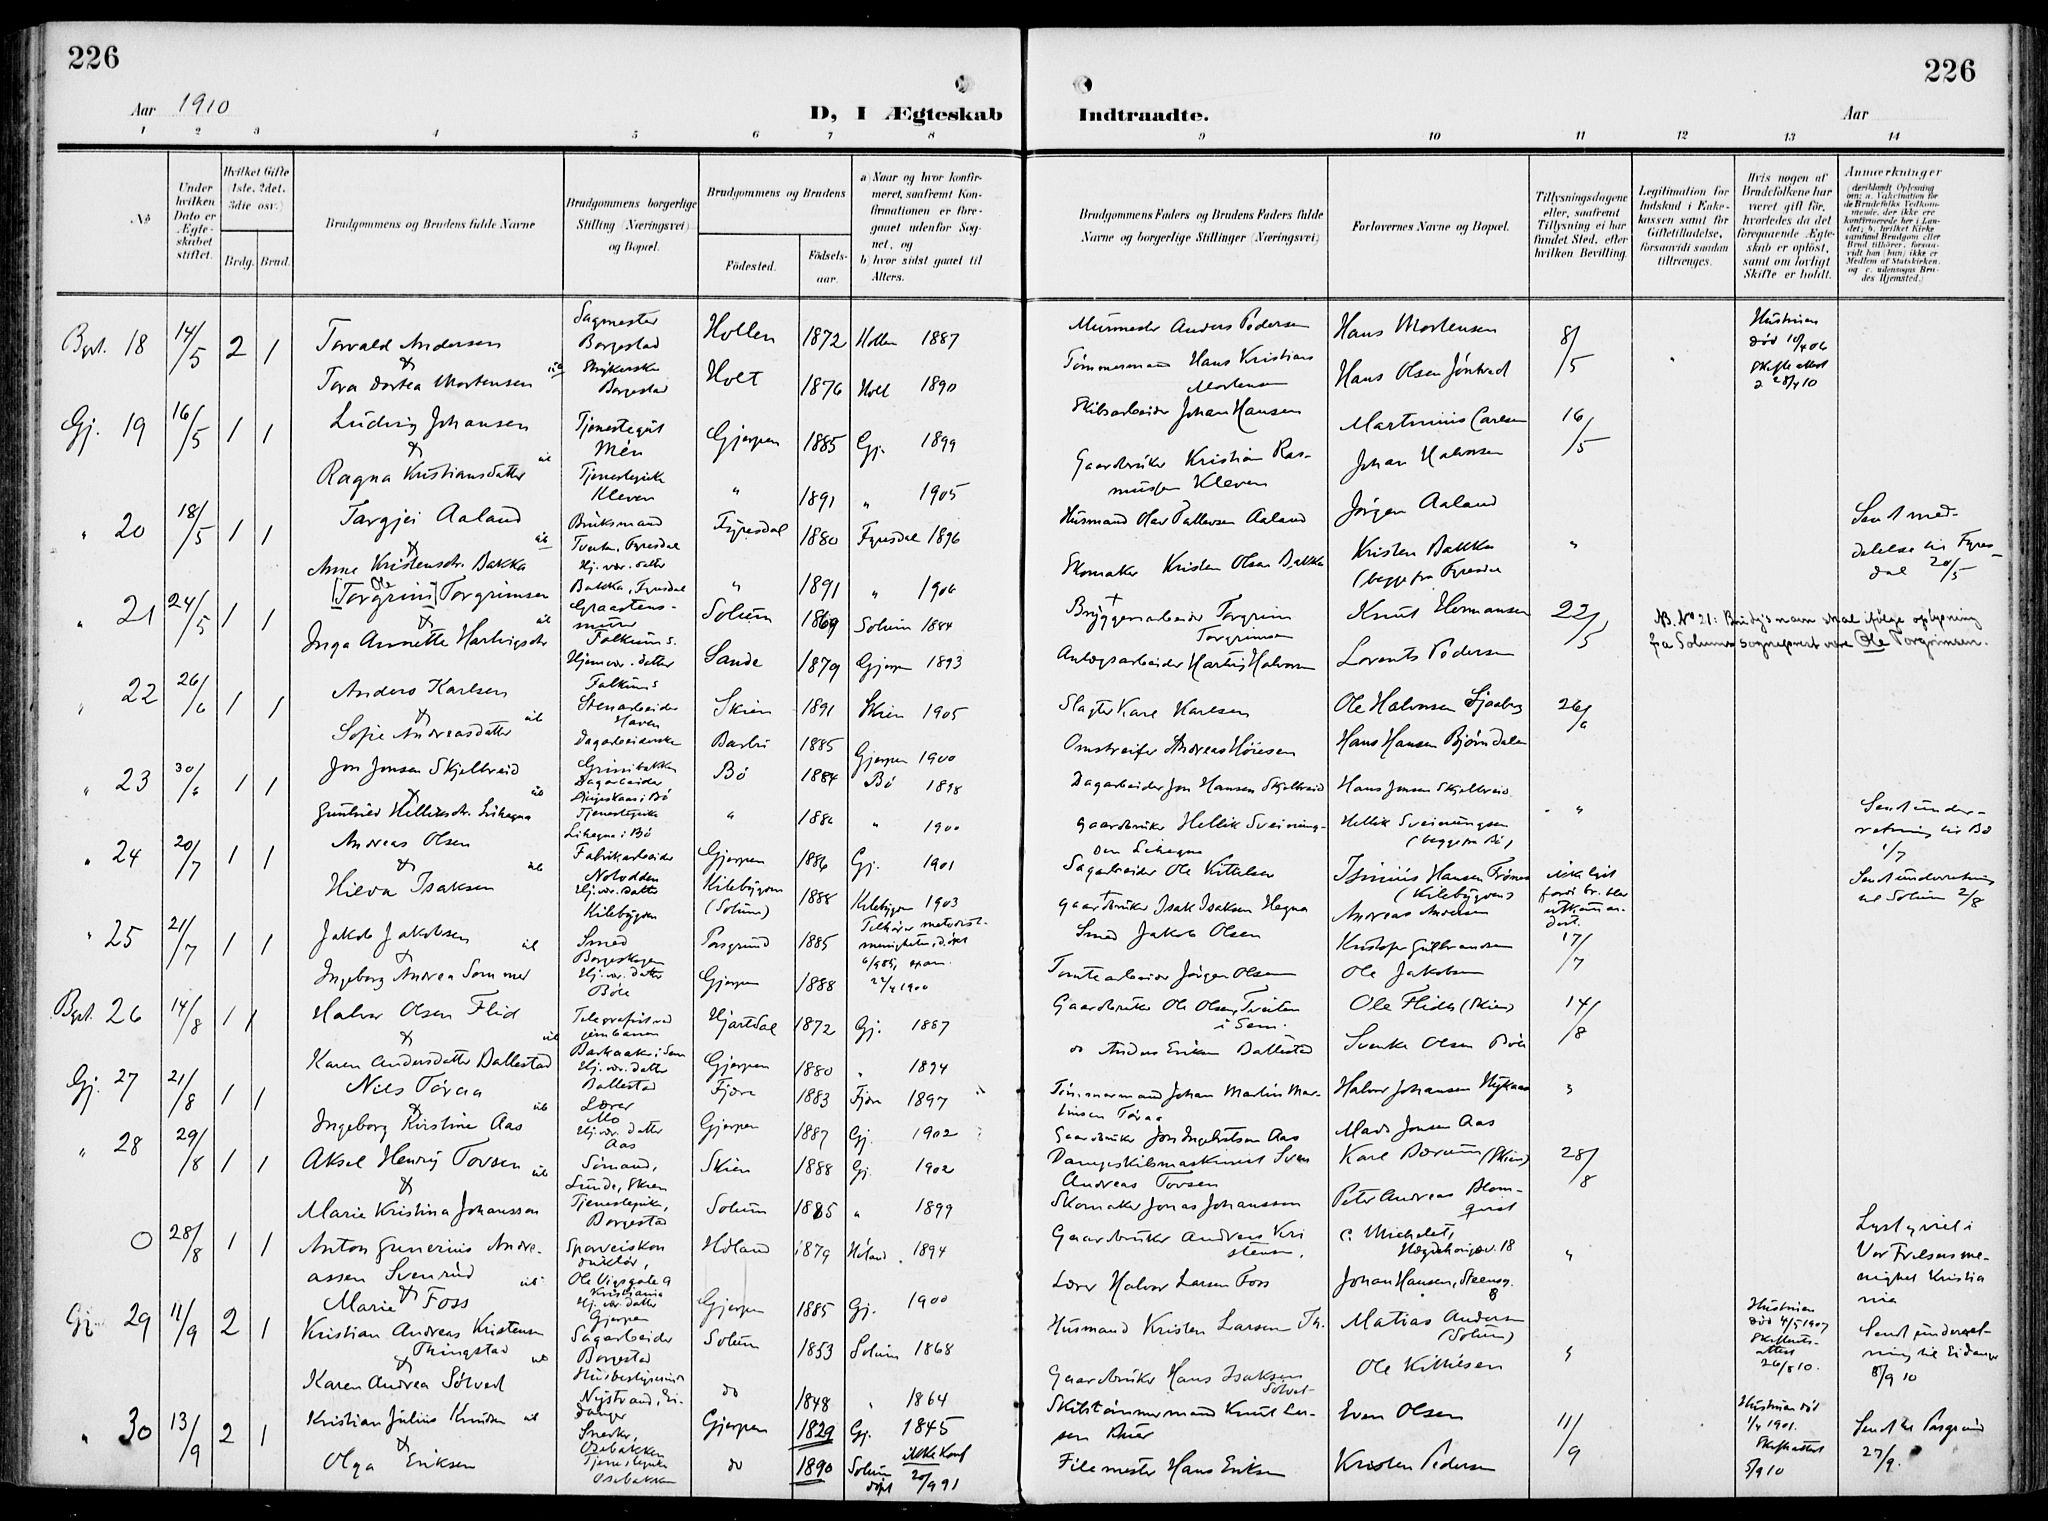 226
226
Aar 1910
D, I Ægteskab
Indtraadte.
Aar
1 2 3 4 5 6 7 8 9 10 11 12 13 14
No
Under hvilken Dato er Ægteskabet stiftet.
Hvilket Gifte 1ste, 2det, 3die osv.)
Brdg. Brud.
Brudgommens og Brudens fulde Navne
Brudgommens borgerlige Stilling (Næringsvei) og Bopæl.
Brudgommens og Brudens
Fødested.
Fødselsaar.
a) Naar og hvor konfirmeret, saafremt Konfirmationen er foregaaet udenfor Sognet, og
b) hvor sidst gaaet til Alters.
Brudgommens Faders og Brudens Faders fulde Navne og borgerlige Stillinger (Næringsvei)
Forlovernes Navne og Bopæl.
Tillysningsdagene eller, saafremt Tillysning ei har fundet Sted, efter hvilken Bevilling.
Legitimation for Indskud i Enkekassen samt for Giftetilladelse, forsaavidt saadan tiltrænges.
Hvis nogen af Brudefolkene har været gift før, hvorledes da det foregaaende Ægteskab er opløst, samt om lovligt Skifte er holdt.
Anmærkninger
(deriblandt Oplysning om: a. Vakcination for de Brudefolks Vedkommende, der ikke ere konfirmerede her i Landet; b. hvilket Kirkesamfund Brudgom eller Brud tilhører, forsaavidt han (hun) ikke er Medlem af Statskirken, og c. udensogns Brudes Hjemsted.)
Bgst. 18 14/5 2 1 Torvald Andersen Sagmester Borgestad Hollen 1872 Hollen 1887 Murmester Anders Pedersen Hans Mortensen 8/5 Hustruen død 10/4 06
& Tora Dortea Mortensen Strykerske Borgestad Holt 1876 Holt 1890 Tømmermand Hans Kristian Mortensen Hans Olsen Skifteattest
Gj. 19 16/5 1 1 Ludvig Johansen Tjenestegut Mén Gjerpen 1885 Gj. 1899 Skibsarbeider Johan Hansen Martinius Carlsen 16/5
& Ragna Kristiansdatter Tjenestepike Kleven " 1891 " 1905 Gaardbruker Kristian Rasmussen Kleven Johan Halvorsen
" 20 18/5 1 1 Targjei Aaland Bruksmand Fyresdal 1880 Fyresdal 1896 Husmand Aaland Jørgen Aaland " Sendt meddelelse til Fyresdal 20/5
& Anne Kristensdtr. Bakka Hj. vær. datter Bakka, Fyresdal " 1891 " 1906 Skomaker Kristen Olsen Bakka Kristen Bakka (begge fra Fyresdal
" 21 24/5 1 1 [Torgrim] Ole Torgrimsen Graastensmurer Falkum s. Solum 1869 Solum 1884 Bryggearbeider Torgrim Torgrimsen Knut Hermansen 22/5 NB. No 21: Brudg's navn skal ifølge oplysning fra Solums sogneprest være Ole Torgrimsen.
& Inga Annette Hartvigsdtr Hjemvær. datter Falkum s Sande 1879 Gjerpen 1893 Anlægsarbeider Hartvig Halvorsen Lorents Pedersen
" 22 26/6 1 1 Anders Karlsen Stenarbeider Haven Skien 1891 Skien 1905 Slagter Karl Karlsen Ole Halvorsen 26/6
& Sofie Andreasdatter Dagarbeiderske Barbu 1885 Gjerpen 1900 Omstreifer Andreas Hansen Hansen Bjørndalen
" 23 30/6 1 1 Jon Jonsen Skjelbreid Dagarbeider Bø 1884 Bø 1898 Dagarbeider Jon Hansen Skjelbreid Hans Jonsen Skjelbreid " Sendt underretning til Bø 1/7
& Gunhild Helliksdtr. Lihegna Tjenestepike Lihegna i Bø " 188 " 1900 Gaardbruker Hellik Sveinungsen Lihegna Hellik Sveinungsen (begge fra Bø)
" 24 20/7 1 1 Andreas Olsen Fabrikarbeider Notodden Gjerpen 1886 Gj. 1901 Sagarbeider Ole Kittelsen Hansen Sendt underretning til Solum 2/8
& Hilda Isaksen Hj. vær. datter Kilebygden Kilebygden (Solum) 1888 Kilebygden 1903 Gaardbruker Isak Isaksen Hegna Andreas Andersen
" 25 21/7 1 1 Jakob Jakobsen Smed Borgeskogen Porsgrund 1885 Tilhører metodistmenigheten, døpt Smed Jakob Olsen Kristofer Gulbrandsen 17/7
& Ingeborg Andrea Sommer Hj. vær. datter Bøle Gjerpen 1888 1900 Tomtearbeider Jørgen Olsen Ole Jakobsen
Bgst. 26 14/8 1 1 Halvor Olsen Flid Telegrafist ved jernbanen Hjartdal 1872 Gj. 1887 Gaardbruker Ole Olsen Tveiten i Sem. Ole Flid (Skien) 14/8
& Karen Andersdatter Ballestad Hj. vær. datter Ballestad Gjerpen 1880 " 1894 do Anders Eriksen Ballestad Svenke Olsen Bøle
Gj. 27 21/8 1 1 Nils Töraa Lærer Mo Fjære 1883 Fjære 1897 Tømmermand Johan Martin Martinsen Töraa Halvor Johansen "
& Ingeborg Kirstine Aas Hj. vær. datter Aas Gjerpen 1887 Gj. 1902 Gaardbruker Jon Ingebretsen Aas Mads Jonsen Aas
" 28 29/8 1 1 Aksel Henry Tovsen Sømand, Lunde, Skien Skien 1888 Gj. 1902 Dampskibsmaskinist Sven Andreas Tovsen Karl (Skien) 28/8
& Marie Kristina Johansson Tjenestepike, Borgestad Solum 1885 " 1899 Skomaker Jonas Johansson Peter Andreas Blomquist
0 28/8 1 1 Anton Gunerius Andreassen Svenrud Sporveiskonduktør, Ole Vigsgate 9 Kristiania Høland 1879 Høland 1894 Gaardbruker Andreas Kristensen, C. Michelet, Hægdehaugsv. 18 " Lyst gviet i Vor Frelsers menighet Kristiania
& Marie Foss Hj. vær. datter Gjerpen Gjerpen 1885 Gj. 1900 Lærer Halvor Larsen Foss Johan Hansen, Steensg. 8
Gj. 29 11/9 2 1 Kristian Andreas Kristensen Thingstad Sagarbeider Borgestad Solum 1853 Solum 1868 Husmand Kristen Larsen Th. Matias Andersen (Solum) " Hustruen død 4/5 1907 Skifteattest 26/8 10. Sendt underretning til Eidanger 8/9 10
& Karen Andrea Sølved Husbestyrerinde Nystrand, Eidanger do 1848 " 1864 Gaardbruker Hans Isaksen Sølvet Ole Kittilsen
" 30 13/9 2 1 Kristian Julius Knudsen Snedker, Osebakken Gjerpen 1829 Gj. 1845 Skibstømmermand Knut Larsen Even Olsen 11/9 Hustruen død 1/4 1901. Skifteattest 5/9 10 Sendt til Porsgrund 27/9.
& Olga Eriksen Tjenestepike Osebakken do 1890 Solum døpt ikke konf 20/9 91 Filemester Hans Eriksen Kristen Pedersen